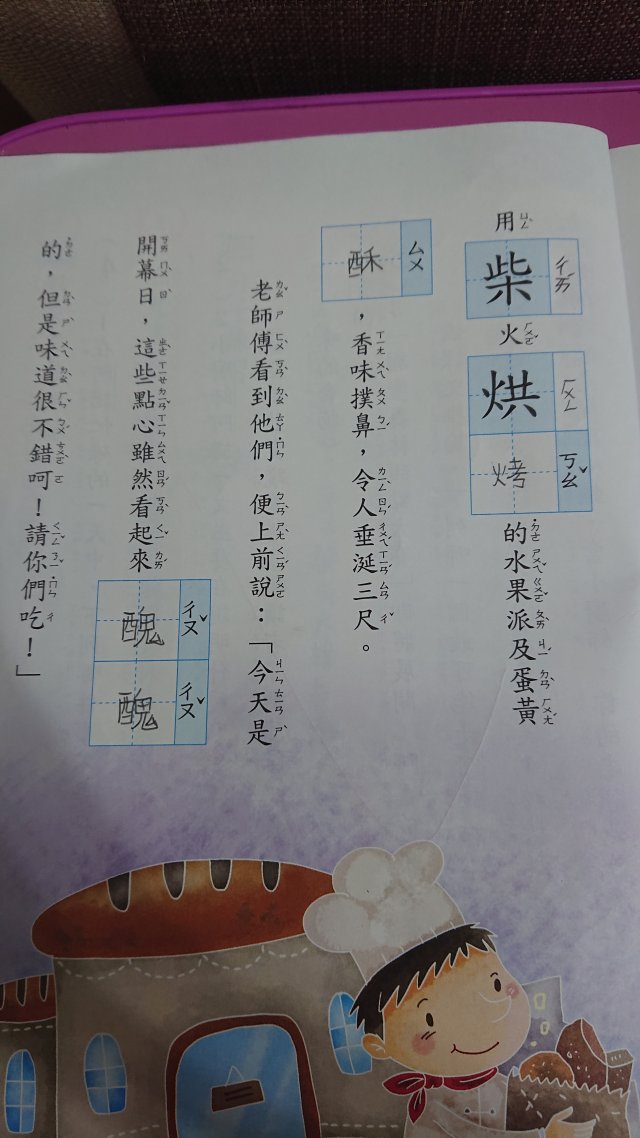 用柴火烘烤的水果派及蛋黃
酥，香味撲鼻，令人垂涎三尺。
老師傅看到他們，便上前說：「今天是
開幕日，這些點心雖然看起來醜醜
的，但是味道很不錯呵！請你們吃！」